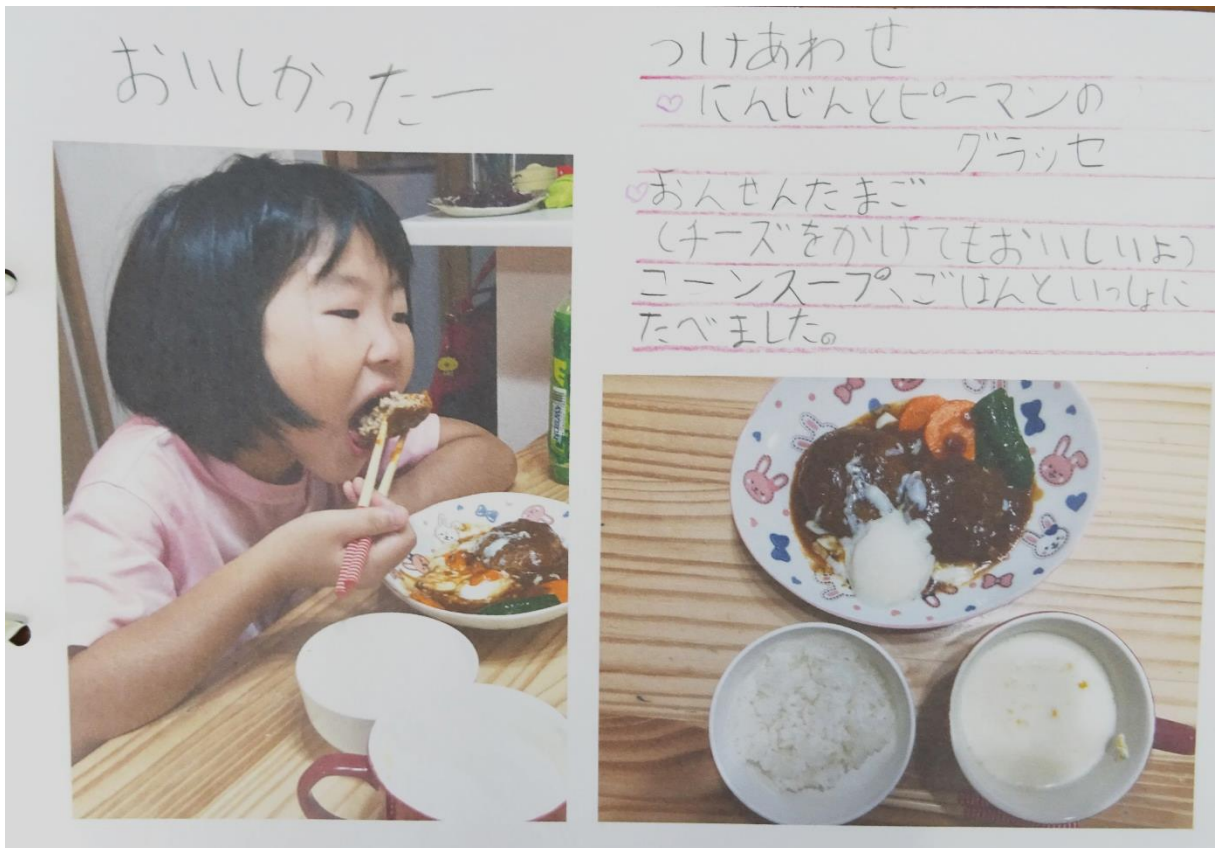 おいしかったー
つけあわせ
♡にんじんとピーマンの
グラッセ
♡おんせんたまご
(チーズをかけてもおいしいよ)
コーンスープ、ごはんといっしょに
たべました。